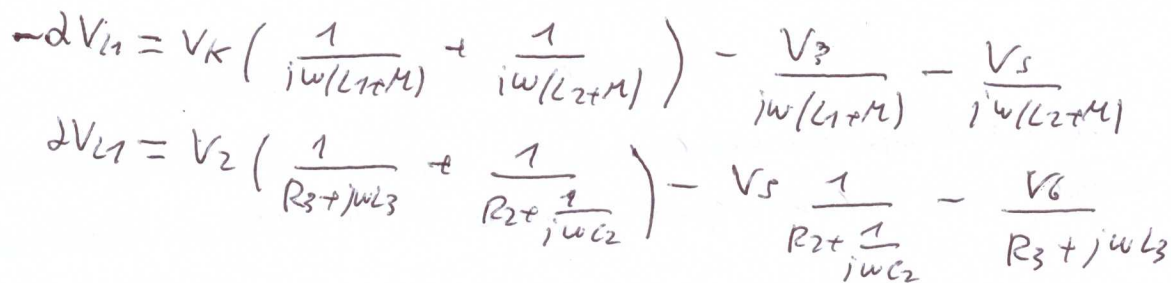 -αV_{L1} = V_K ( \frac{1}{jω(L1+M)} + \frac{1}{jω(L2+M)} ) - \frac{V3}{jω(L1+M)} - \frac{V5}{jω(L2+M)}
αV_{L1} = V_2 ( \frac{1}{R3+jωL3} + \frac{1}{R2+\frac{1}{jωC2}} ) - V5 \frac{1}{R2+\frac{1}{jωC2}} - \frac{V6}{R3+jωL3}